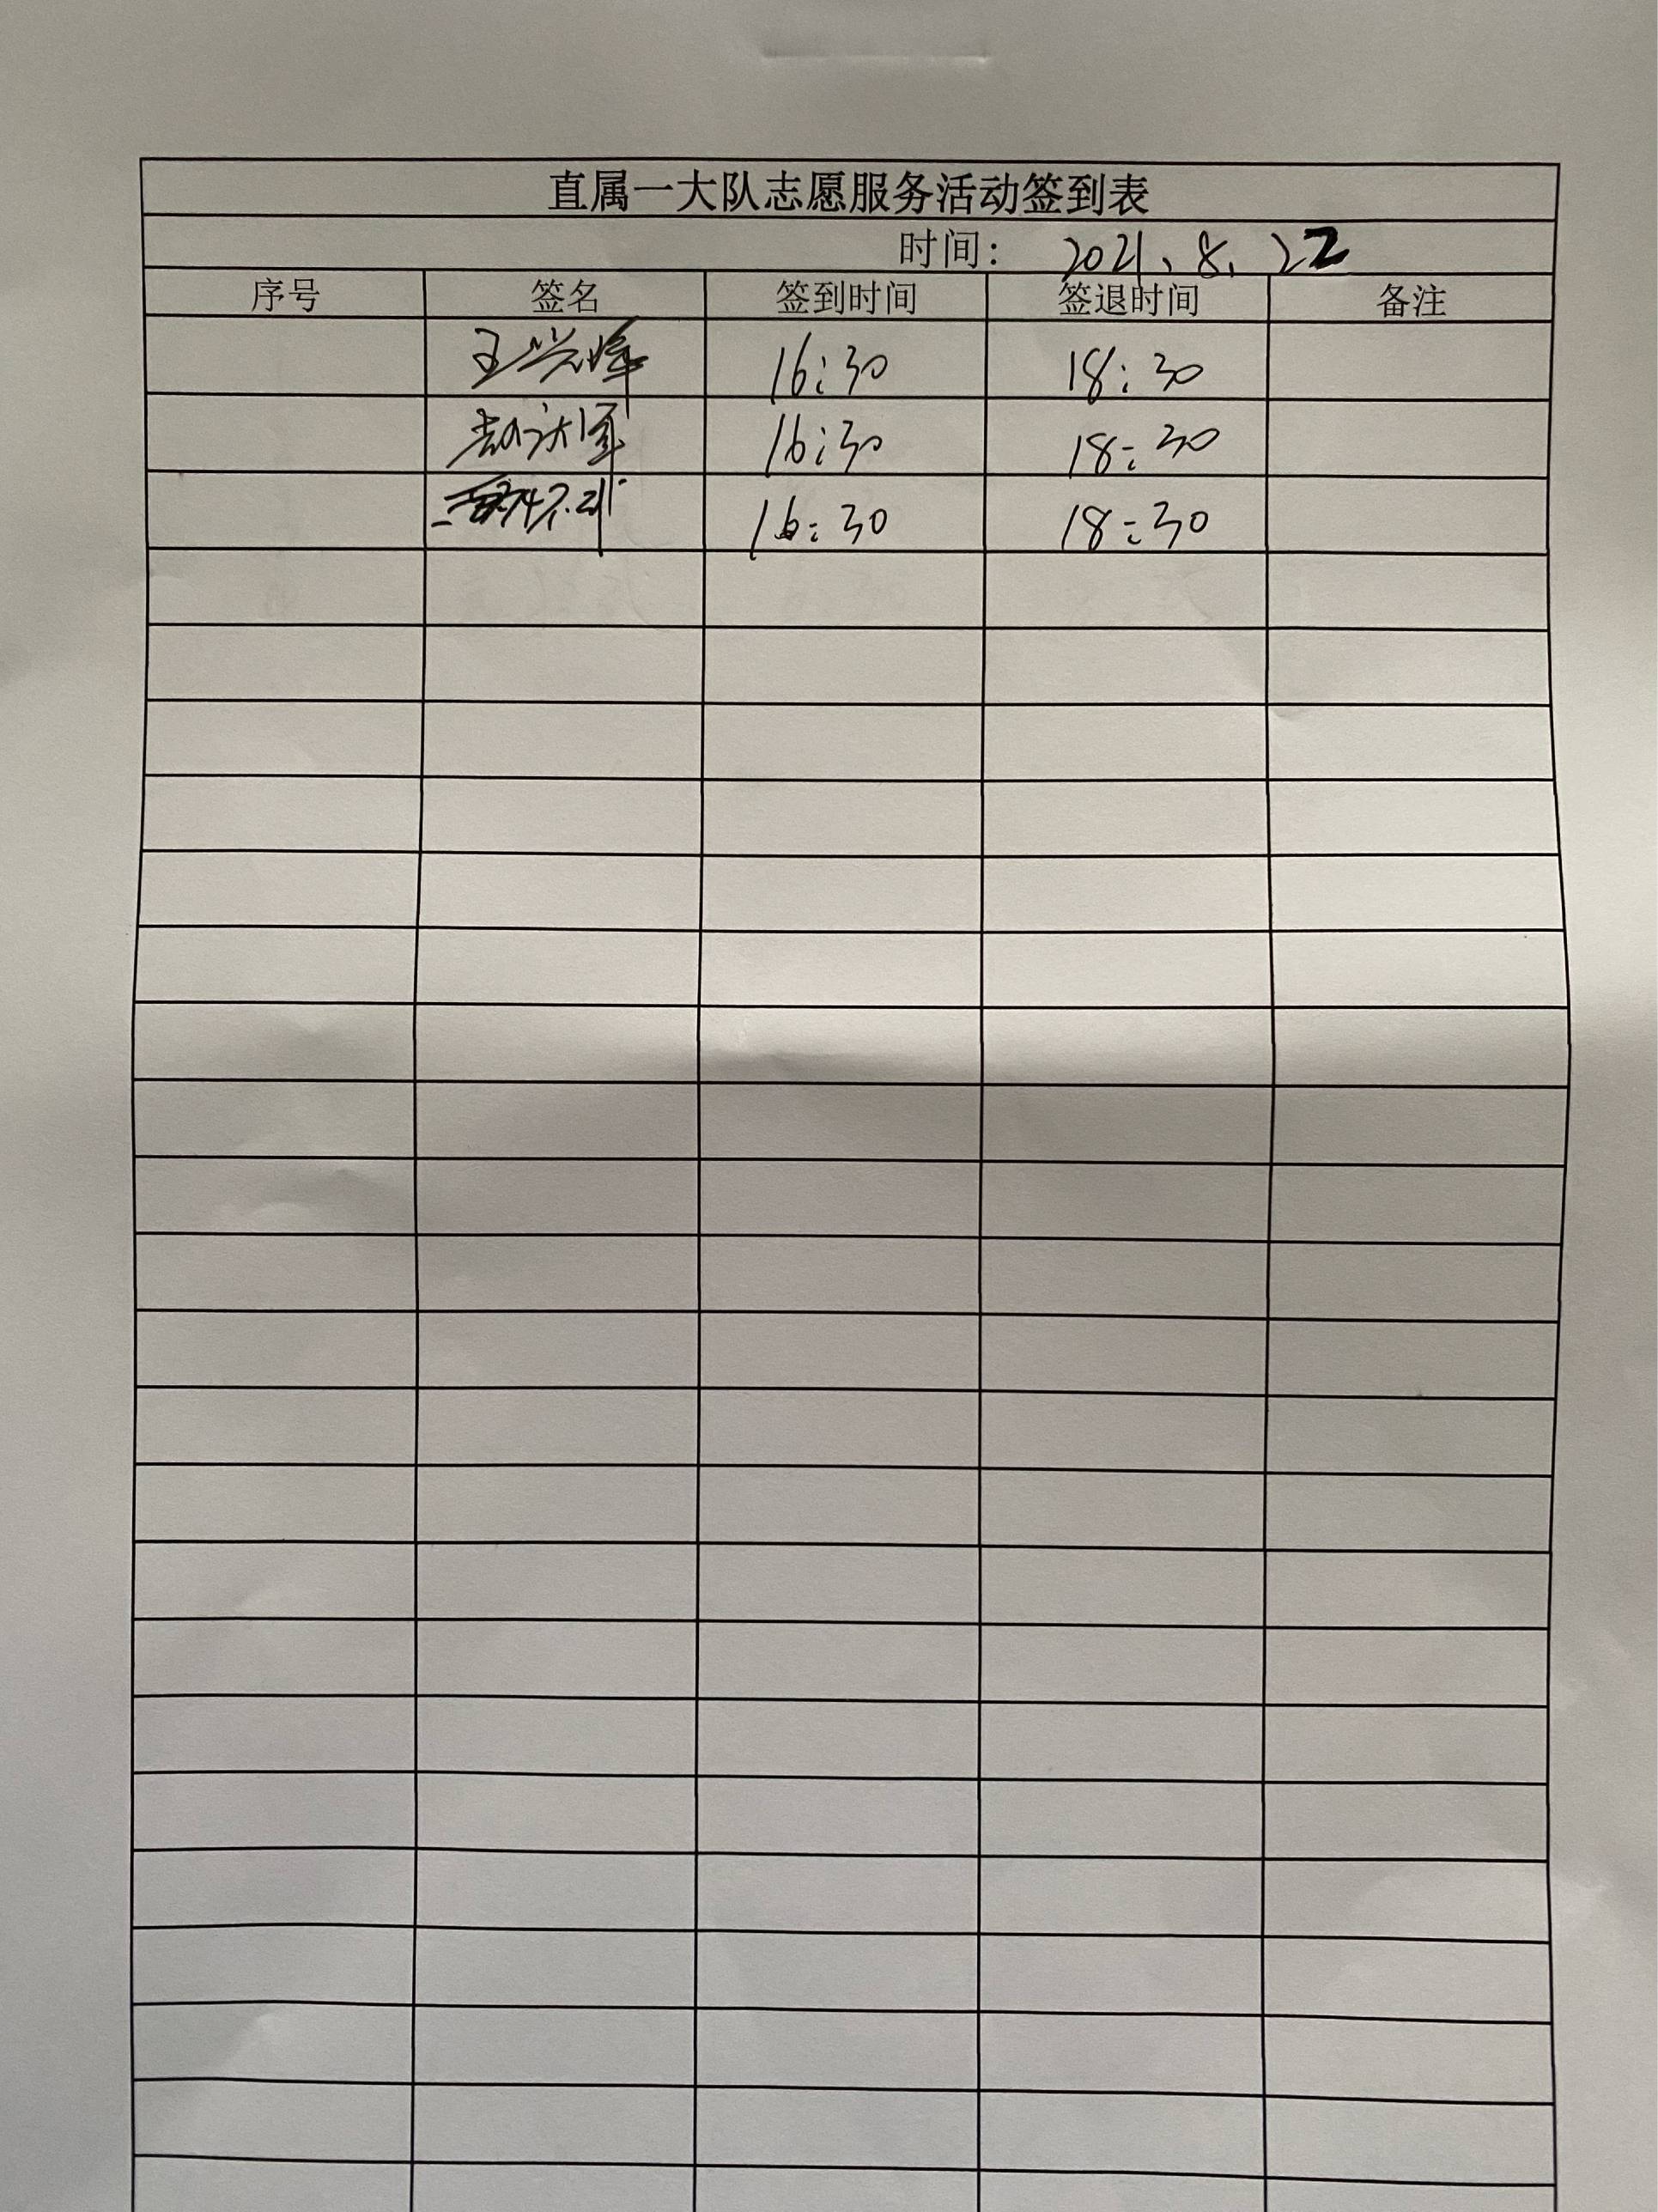 直属一大队志愿服务活动签到表
时间： 2021、8、22
序号 签名 签到时间 签退时间 备注
王兴峰 16:30 18:30
16:30 18:30
16:30 18:30